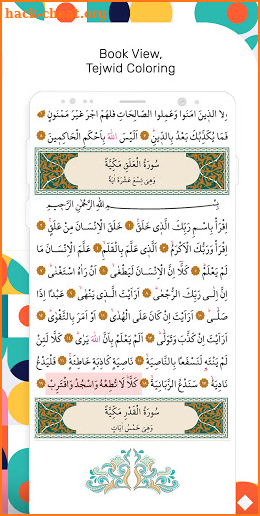 hack-cheat.org
Book View,
Tejwid Coloring
اِلَّا الَّذِينَ اٰمَنُوا وَعَمِلُوا الصَّالِحَاتِ فَلَهُمْ اَجْرٌ غَيْرُ مَمْنُونٍ
فَمَا يُكَذِّبُكَ بَعْدُ بِالدِّينِ اَلَيْسَ اللّٰهُ بِاَحْكَمِ الْحَاكِمِينَ
سُورَةُ الْعَلَقِ مَكِّيَّةٌ
وَهِيَ تِسْعَ عَشَرَةَ اٰيَةً
بِسْمِ اللّٰهِ الرَّحْمٰنِ الرَّحِيمِ
اِقْرَأْ بِاسْمِ رَبِّكَ الَّذِي خَلَقَ خَلَقَ الْاِنْسَانَ مِنْ عَلَقٍ
اِقْرَأْ وَرَبُّكَ الْاَكْرَمُ اَلَّذِي عَلَّمَ بِالْقَلَمِ عَلَّمَ الْاِنْسَانَ مَا
لَمْ يَعْلَمْ كَلَّا اِنَّ الْاِنْسَانَ لَيَطْغٰى اَنْ رَاٰهُ اسْتَغْنٰى
اِنَّ اِلٰى رَبِّكَ الرُّجْعٰى اَرَاَيْتَ الَّذِي يَنْهٰى عَبْدًا اِذَا
صَلّٰى اَرَاَيْتَ اِنْ كَانَ عَلَى الْهُدٰى اَوْ اَمَرَ بِالتَّقْوٰى
اَرَاَيْتَ اِنْ كَذَّبَ وَتَوَلّٰى اَلَمْ يَعْلَمْ بِاَنَّ اللّٰهَ يَرٰى كَلَّا لَئِنْ
لَمْ يَنْتَهِ لَنَسْفَعًا بِالنَّاصِيَةِ نَاصِيَةٍ كَاذِبَةٍ خَاطِئَةٍ فَلْيَدْعُ
نَادِيَهُ سَنَدْعُ الزَّبَانِيَةَ كَلَّا لَا تُطِعْهُ وَاسْجُدْ وَاقْتَرِبْ
سُورَةُ الْقَدْرِ مَكِّيَّةٌ
وَهِيَ خَمْسُ اٰيَاتٍ
hack-cheat.org